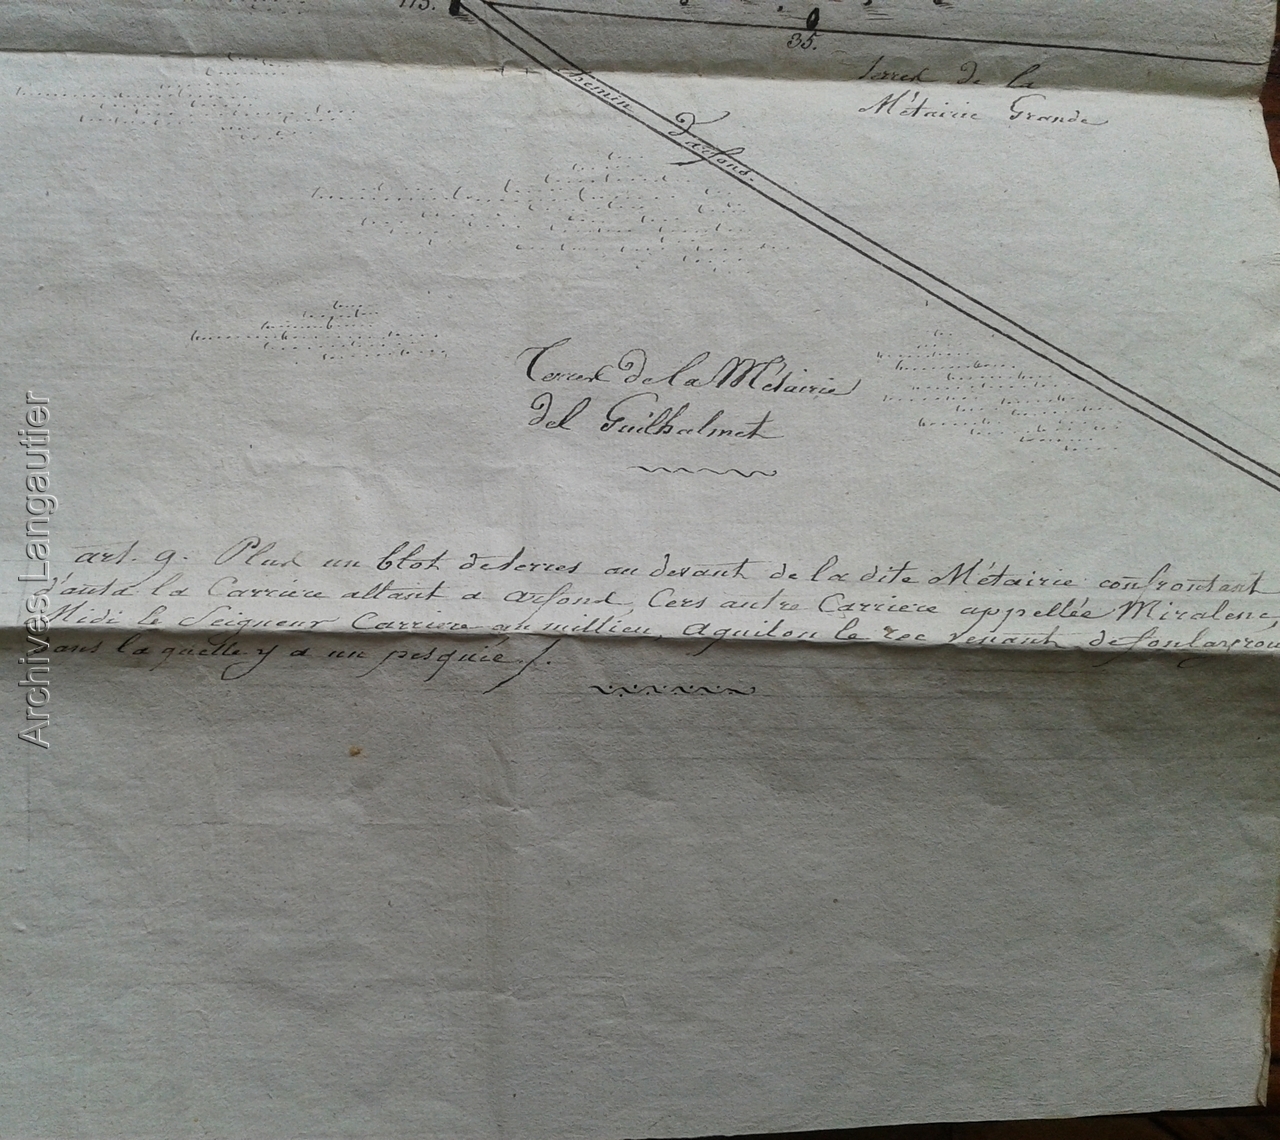 113.
35.
Terres de la
Métairie Grande
chemin
d'arfons.
Terres de la Métairie
del Guilhalmet
art. 9. Plus un blot de terres au devant de la dite Métairie confrontant
d'auta la Carriere allant a arfons, Cers autre Carriere appellée Miralenc,
Midi le Seigneur Carriere au millieu, aquilon le rec venant de
dans laquelle y a un pesquié /.
Archives Langautier